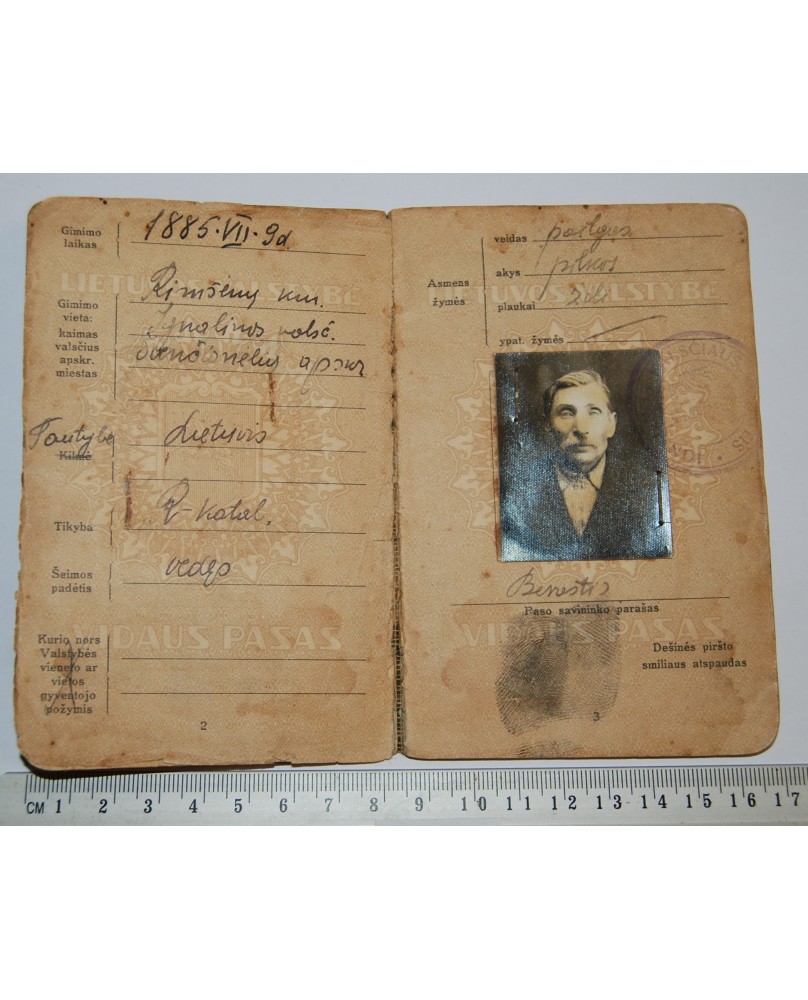 Gimimo
laikas
1885·VII·9d.
Gimimo
vieta:
kaimas
valsčius
apskr.
miestas
Rimšėnų km.
Ignalinos valsč.
apskr
Tautybė
Kilmė
Lietuvis
Tikyba
R-katal.
Šeimos
padėtis
vedęs
Kurio nors
Valstybės
vieneto ar
vietos
gyventojo
požymis
LIETUVOS VALSTYBĖ
VIDAUS PASAS
2
Asmens
žymės
veidas pailgas
akys pilkos
plaukai žili
ypat. žymės
LIETUVOS VALSTYBĖ
Paso savininko parašas
VIDAUS PASAS
Dešinės piršto
smiliaus atspaudas
3
CM 1 2 3 4 5 6 7 8 9 10 11 12 13 14 15 16 17